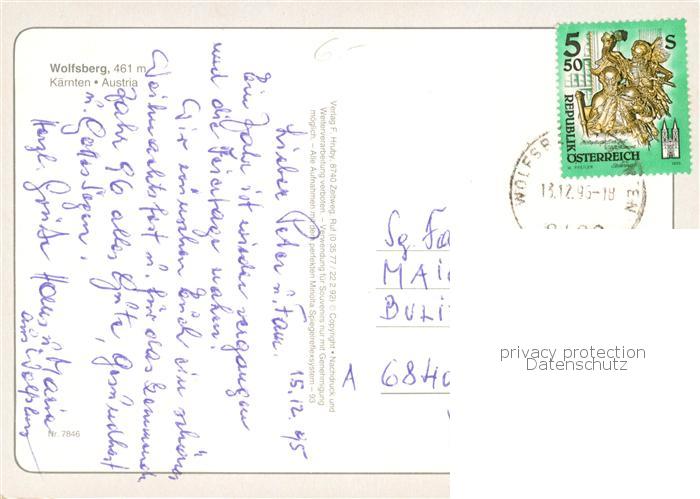 Wolfsberg, 461 m
Kärnten • Austria
Lieber Peter u. Fam. 15.12.95
Ein Jahr ist wieder vergangen
und die Feiertage nahen!
Wir wünschen Euch ein schönes
Weihnachtsfest u. für das kommende
Jahr 96 alles Gute, Gesundheit
u. Gottes Segen.
Herzl. Grüße Hans u. Maria
aus Wolfsberg
Nr. 7846
Verlag F. Hruby, 8740 Zeltweg, Ruf (0 35 77 / 22 2 92) © Copyright • Nachdruck und
Weiterverarbeitung verboten – Verwendung für Souvenirs nur mit Genehmigung
möglich. – Alle Aufnahmen mit dem perfekten Minolta Spiegelreflexsystem – 93
5 50 S
REPUBLIK
ÖSTERREICH
13.12.95-18
Sg. Fa
MAI
BULI
A 6840
privacy protection
Datenschutz